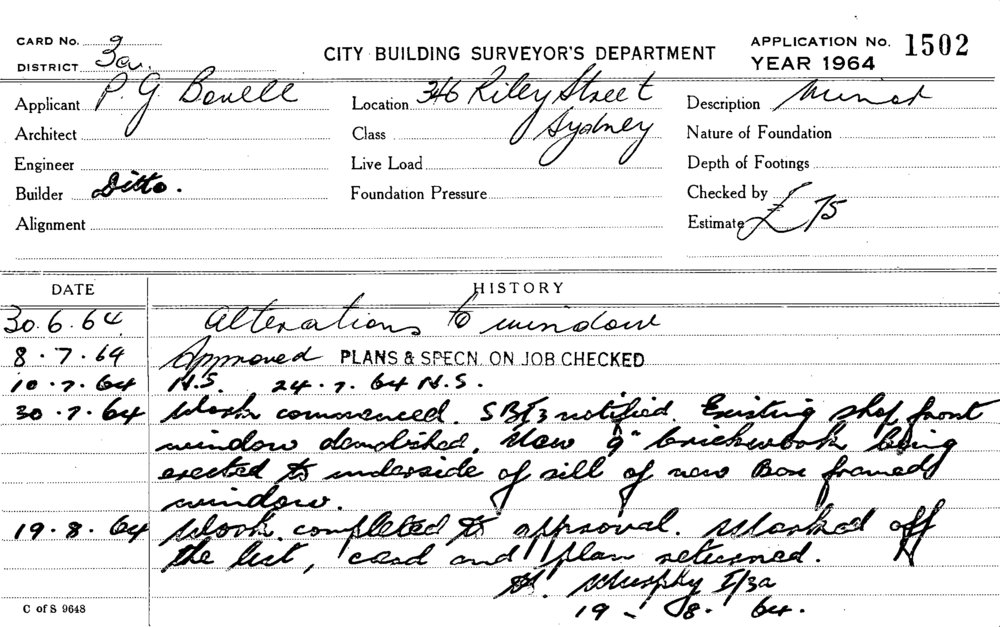 CARD No. 3
DISTRICT 3a.
CITY BUILDING SURVEYOR'S DEPARTMENT
APPLICATION No. 1502
YEAR 1964
Applicant P. G Bonell
Location 346 Riley Street
Sydney
Description Minor
Architect
Class
Nature of Foundation
Engineer
Live Load
Depth of Footings
Builder Ditto.
Foundation Pressure
Checked by
Alignment
Estimate £75
DATE HISTORY
30.6.64 Alterations to window
8.7.64 Approved PLANS & SPECN. ON JOB CHECKED
10.7.64 N.S. 24.7.64 N.S.
30.7.64 Work commenced. notified. Existing shop front
window demolished. Now 9" brickwork being
erected to underside of sill of new Box framed
window.
19.8.64 Work completed to approval. Marked off
the list, card and plan returned.
Murphy I/3a
19-8.64.
C of S 9648